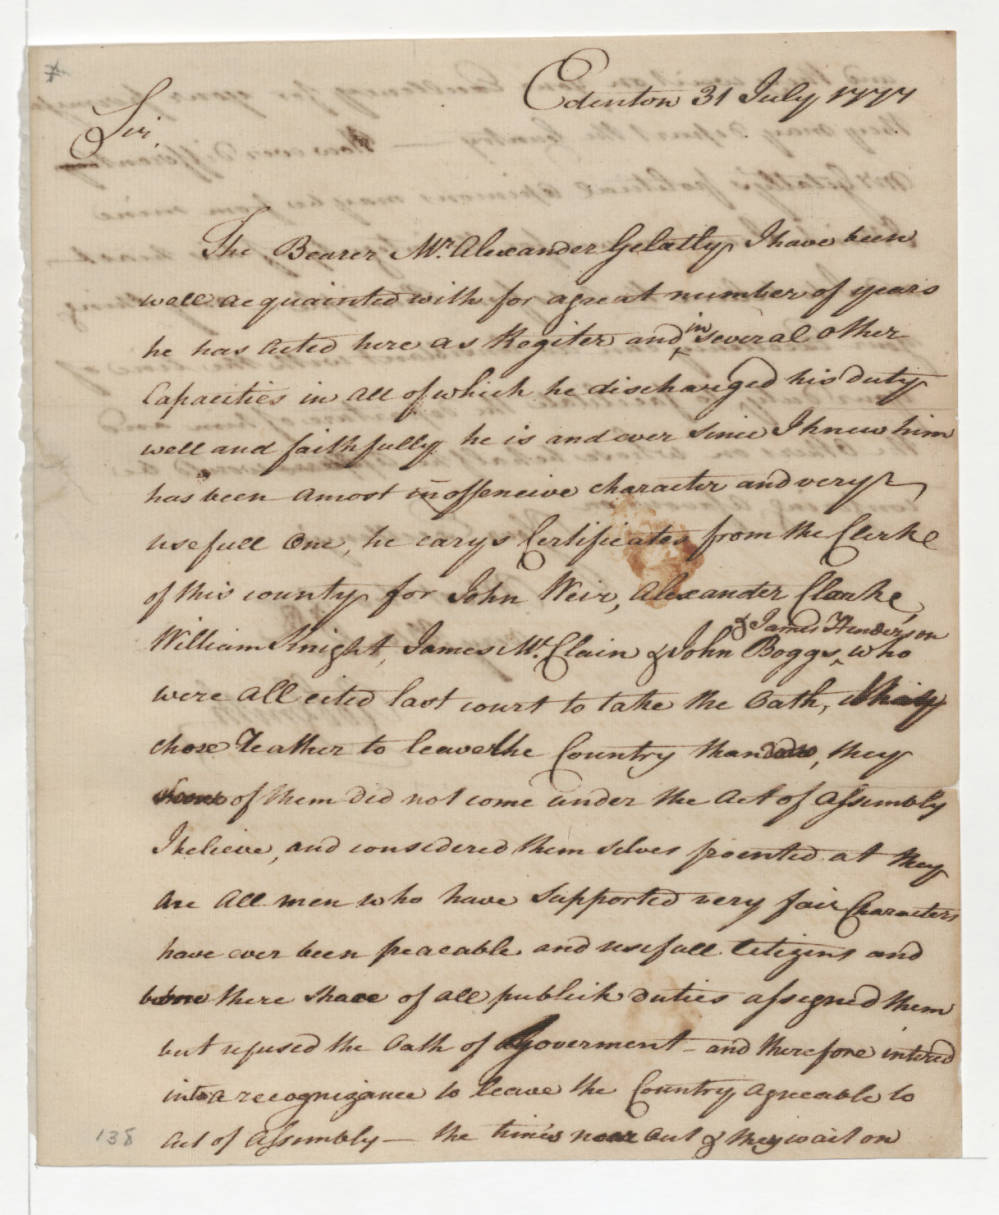 Edenton 31 July 1777
Sir,
The Bearer Mr. Alexander Gelatly I have been
well acquainted with for a great number of years
he has acted here as Regiter and in several other
Capacities in all of which he discharged his duty
well and faithfully he is and ever since I knew him
has been a most inoffencive character and very
usefull One, he carys Certificates from the Clerke
of this county for John Weir, Alexander Clarke,
William Knight, James Mc.Clain & John Boggs, & James Henderson who
were all cited last court to take the Oath,
chose Reather to leave the Country than do so, they
of them did not come under the Act of Assembly
I believe, and considered them selves pointed at they
are all men who have supported very fair Characters
have ever been peacable and usefull Citizens and
bore there share of all publick duties assigned them
but refused the Oath of Goverment - and therefore intered
into a recognizance to leave the Country agreeable to
Act of Assembly — the time's near out & they wait on
138